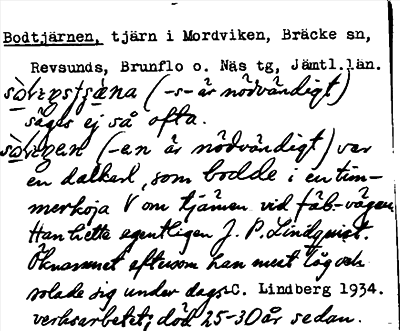 Bodtjärnen, tjärn i Mordviken, Bräcke sn,
Revsunds, Brunflo o. Näs tg, Jämtl.län.
(-s- är nödvändigt)
säges ej så ofta.
(-an är nödvändigt) var
en dalkarl, som bodde i en tim-
merkoja V om tjärnen vid fäb.-vägen
Han hette egentligen J. P. Lindquist.
Öknamnet eftersom han mest låg och
solade sig under dags- C. Lindberg 1934.
verksarbetet; död 25-30 år sedan.